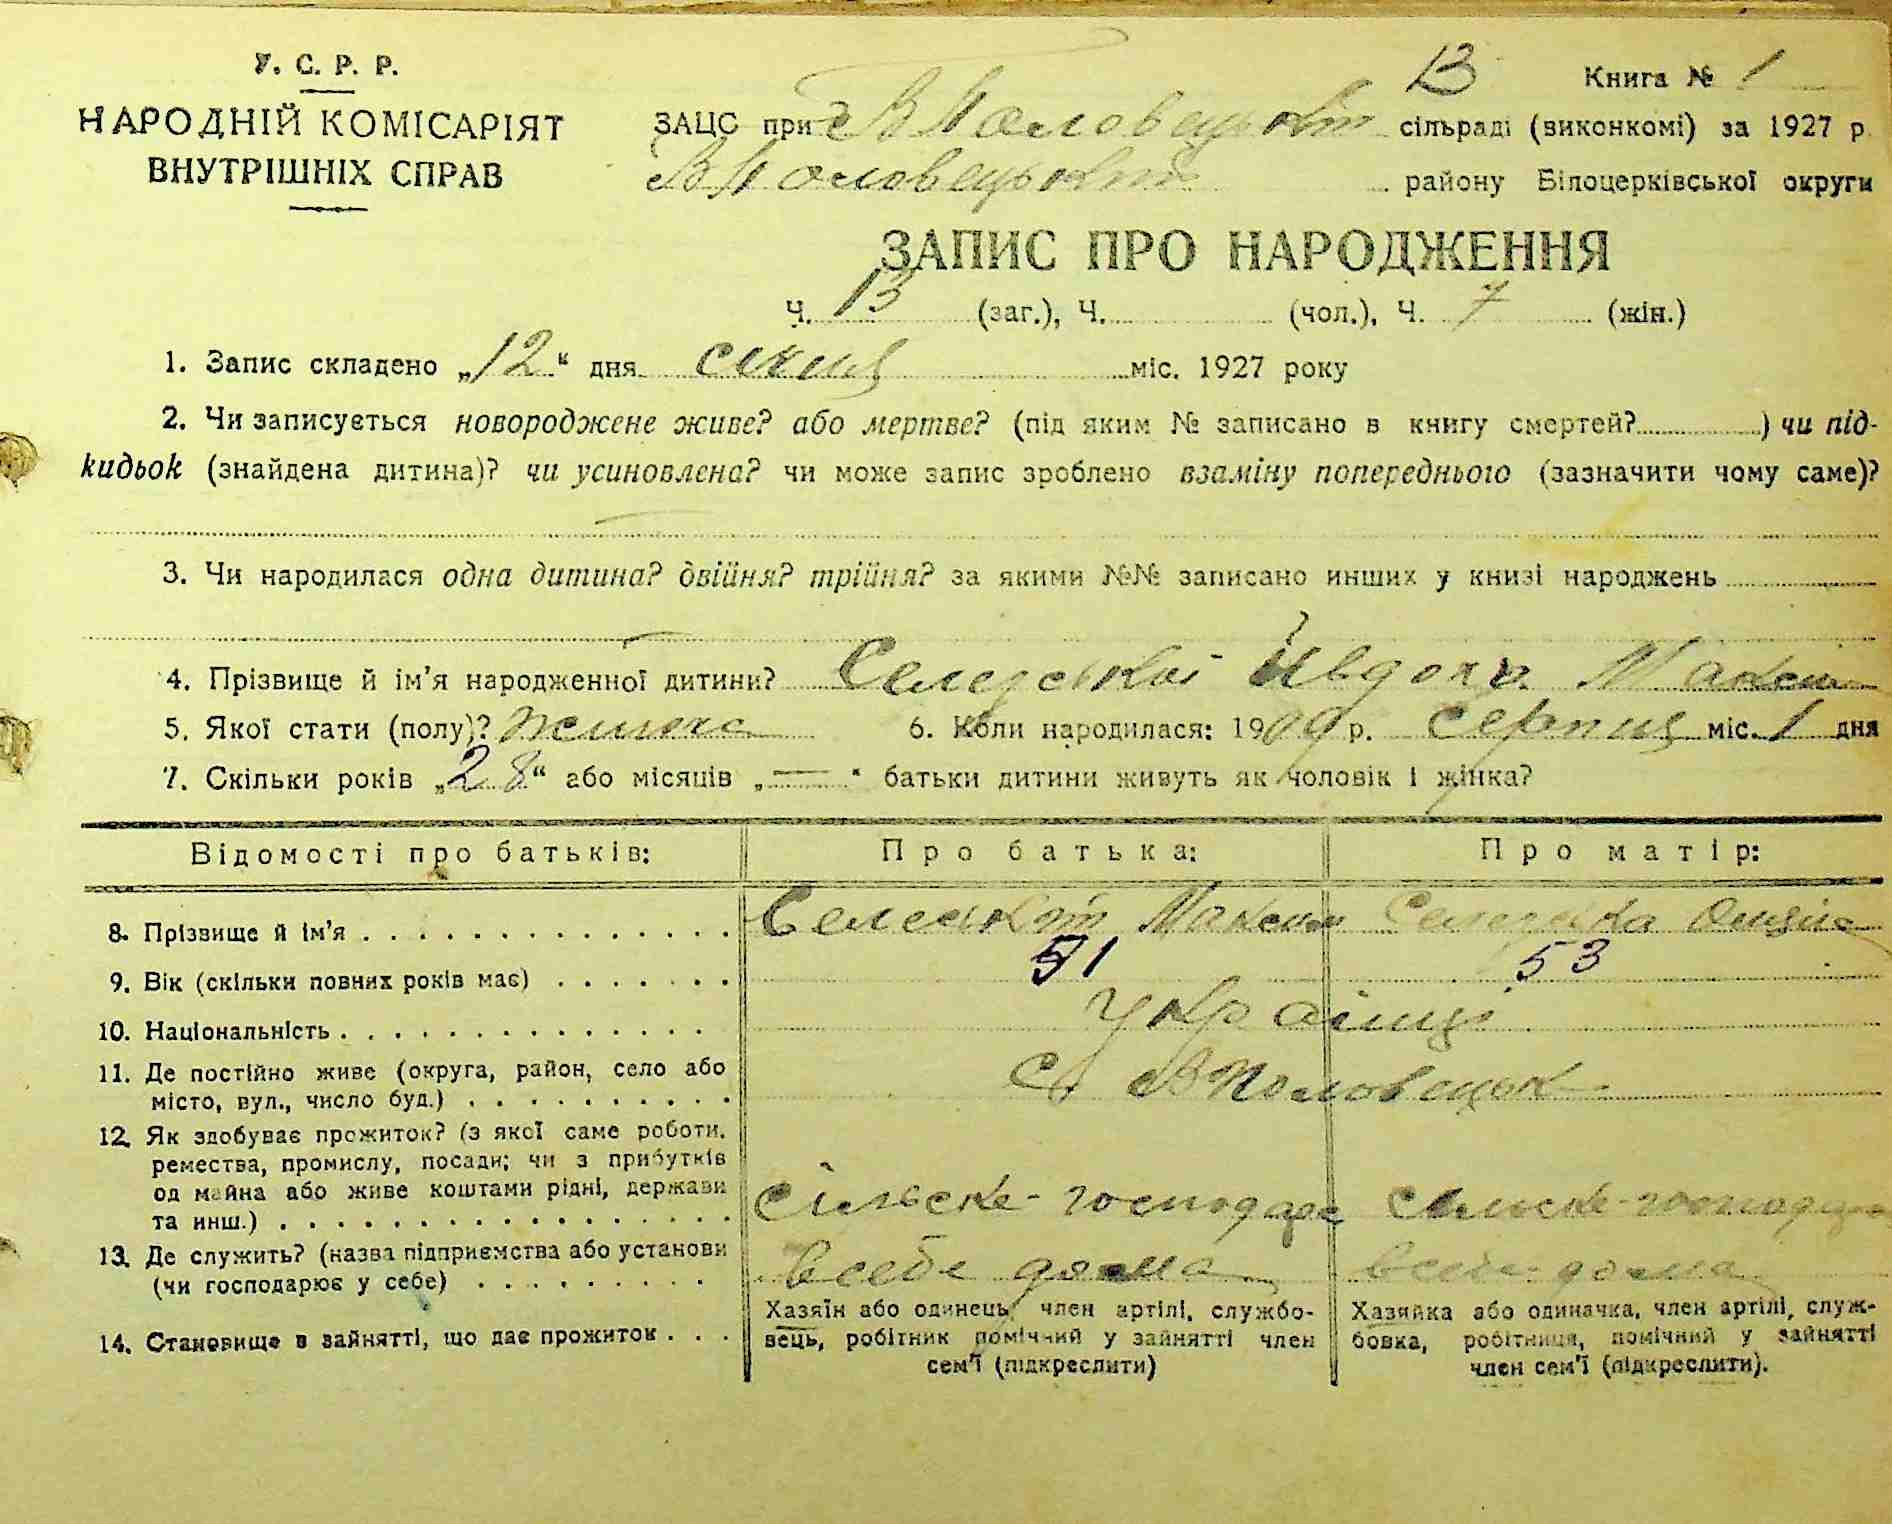 У. С. Р. Р.
НАРОДНІЙ КОМІСАРІЯТ
ВНУТРІШНІХ СПРАВ
13 Книга № 1
ЗАЦС при В Половецькій сільраді (виконкомі) за 1927 р.
В Половецький району Білоцерківської округи
ЗАПИС ПРО НАРОДЖЕННЯ
Ч. 13 (заг.), Ч. (чол.), Ч. 7 (жін.)
1. Запис складено „12“ дня січня міс. 1927 року
2. Чи записується новороджене живе? або мертве? (під яким № записано в книгу смертей? ) чи під-
кидьок (знайдена дитина)? чи усиновлена? чи може запис зроблено взаміну попереднього (зазначити чому саме)?
3. Чи народилася одна дитина? двійня? трійня? за якими №№ записано инших у книзі народжень
4. Прізвище й ім'я народженної дитини? Макси
5. Якої стати (полу)? жіноча 6. Коли народилася: 1909 р. серпня міс. 1 дня
7. Скільки років „28“ або місяців „—“ батьки дитини живуть як чоловік і жінка?
Відомості про батьків: Про батька: Про матір:
8. Прізвище й ім'я Максим
9. Вік (скільки повних років має) 51 53
10. Національність Українці
11. Де постійно живе (округа, район, село або
місто, вул., число буд.) С. В Половецьк
12. Як здобуває прожиток? (з якої саме роботи,
ремества, промислу, посади; чи з прибутків
од майна або живе коштами рідні, держави
та инш.) сільске-господарс сільске-господар
13. Де служить? (назва підприємства або установи
(чи господарює у себе) в себе дома в себе дома
14. Становище в зайнятті, що дає прожиток
Хазяїн або одинець, член артілі, службо-
вець, робітник помічний у зайнятті член
сем'ї (підкреслити)
Хазяйка або одиначка, член артілі, служ-
бовка, робітниця, помічний у зайнятті
член сем'ї (підкреслити).